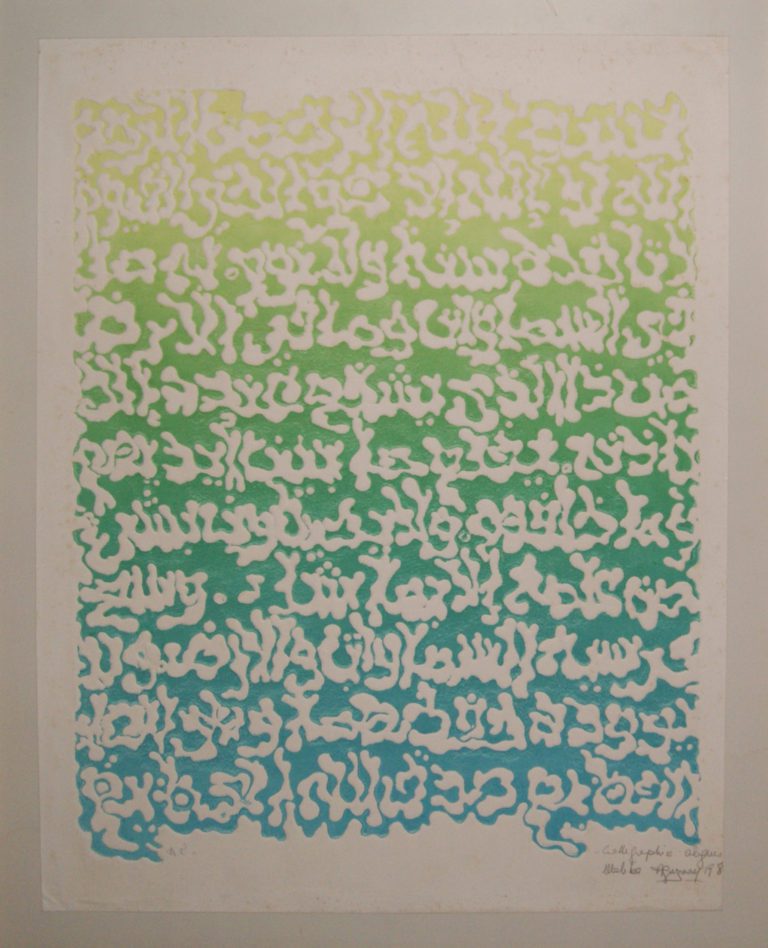 بسم الله الرحمن الرحيم
الله لا إله إلا هو الحي القيوم
لا تأخذه سنة ولا نوم له ما
في السماوات وما في الأرض
من ذا الذي يشفع عنده إلا
بإذنه يعلم ما بين أيديهم
وما خلفهم ولا يحيطون بشيء
من علمه إلا بما شاء . وسع
كرسيه السماوات والأرض ولا
يؤوده حفظهما وهو العلي
العظيم صدق الله العظيم
Calligraphie
Malika Agueznay 198